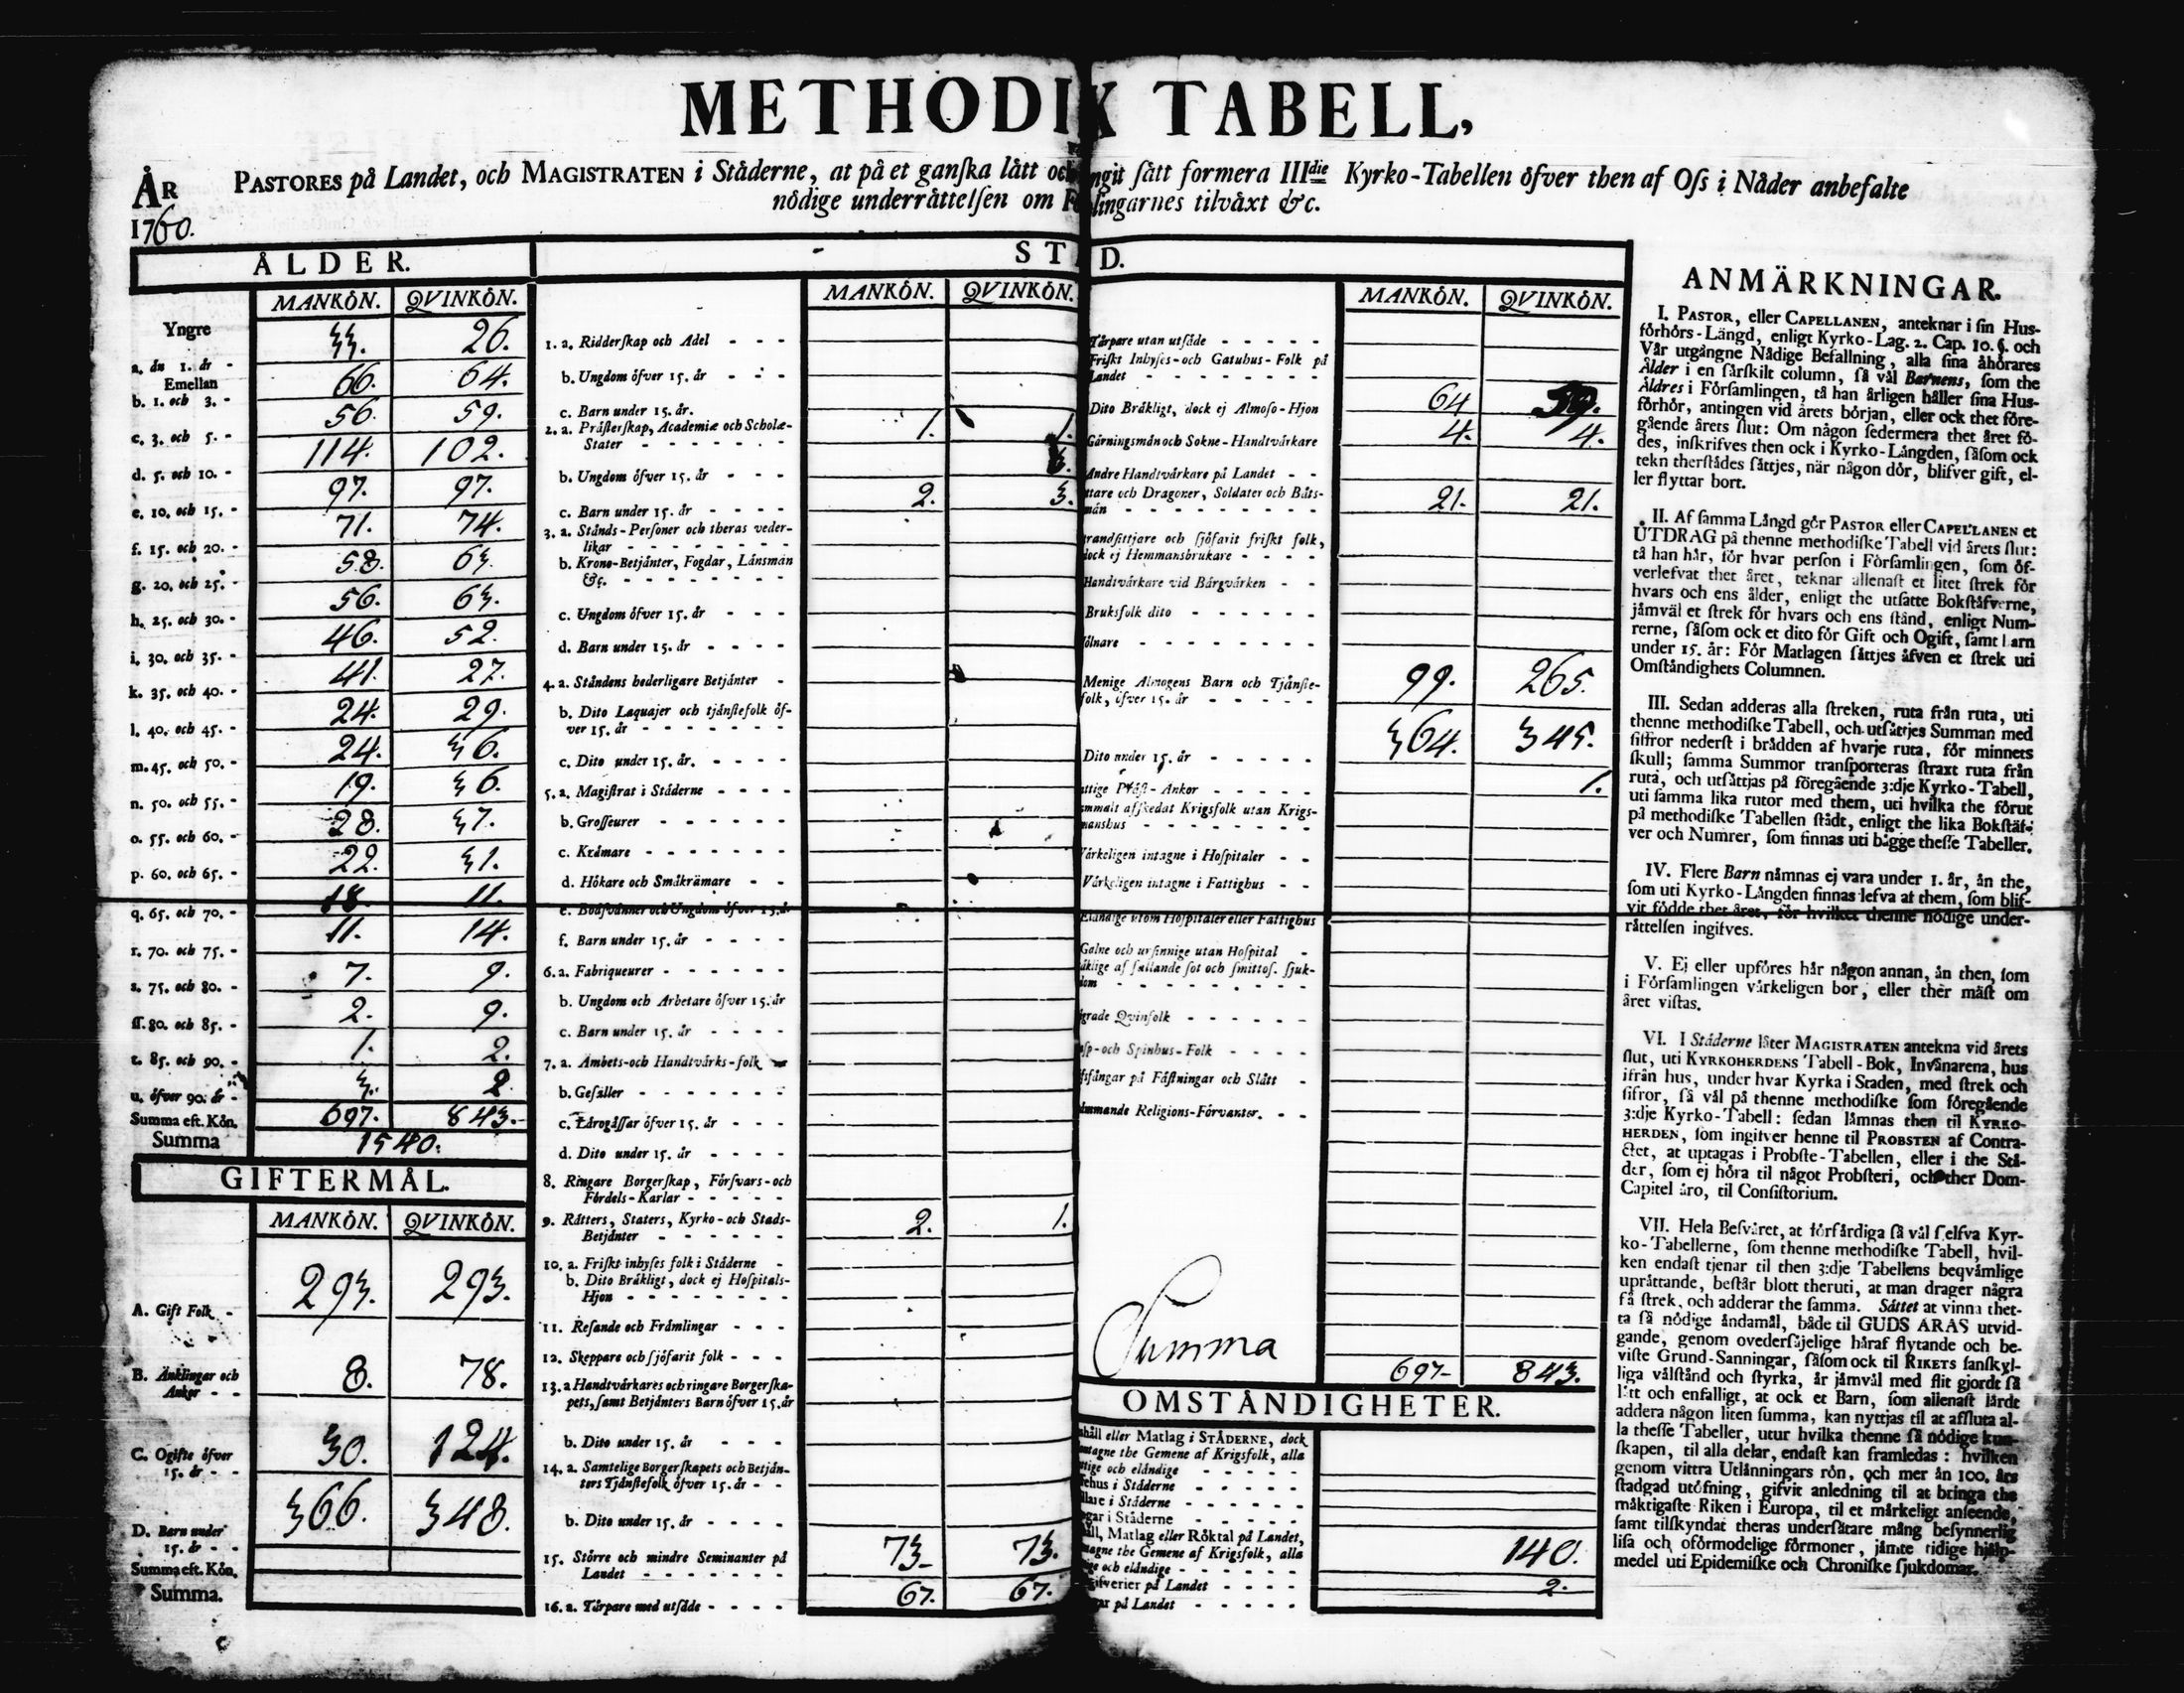 METHODIK TABELL,
ÅR PASTORES på Landet, och MAGISTRATEN i Ståderne, at på et ganſka lått och ngit ſått formera IIIdie Kyrko-Tabellen ôfver then af Oſs i Nåder anbefalte
1760. nôdige underråttelſen om Fô lingarnes tilvåxt &c.
ÅLDER.
MANKÔN. QVINKÔN.
Yngre
a. ån 1. år - 33. 26.
Emellan
b. 1. och 3. - 66. 64.
c. 3. och 5. - 56. 59.
d. 5. och 10. - 114. 102.
e. 10. och 15. - 97. 97.
f. 15. och 20. - 71. 74.
g. 20. och 25. - 58. 63.
h. 25. och 30. - 56. 63.
i. 30. och 35. - 46. 52.
k. 35. och 40. - 41. 27.
l. 40. och 45. - 24. 29.
m. 45. och 50. - 24. 36.
n. 50. och 55. - 19. 36.
o. 55. och 60. - 28. 37.
p. 60. och 65. - 22. 31.
q. 65. och 70. - 18. 11.
r. 70. och 75. - 11. 14.
s. 75. och 80. - 7. 9.
ſſ. 80. och 85. - 2. 9.
t. 85. och 90. - 1. 2.
u. ôfver 90. år - 3. 2
Summa eft. Kôn. 697. 843.
Summa 1540.
GIFTERMÅL.
MANKÔN. QVINKÔN.
A. Gift Folk - 293. 293.
B. Änklingar och
Ankor - - 8. 78.
C. Ogifte ôfver
15. år - - 30. 124.
D. Barn under
15. år - - 366. 348.
Summa eft. Kôn.
Summa.
ST D.
MANKÔN. QVINKÔN.
1. a. Ridderſkap och Adel - - -
b. Ungdom ôfver 15. år - - -
c. Barn under 15. år.
2. a. Pråſterſkap, Academiæ och Scholæ-
Stater - - - - - - 1. 1.
b. Ungdom ôfver 15. år - - - 3.
c. Barn under 15. år - - - - 2. 3.
3. a. Stånds-Perſoner och theras veder-
likar - - - - - - -
b. Krono-Betjånter, Fogdar, Lånsmån
&c. - - - - - - -
c. Ungdom ôfver 15. år - - -
d. Barn under 15. år - - - -
4. a. Ståndens hederligare Betjånter -
b. Dito Laquajer och tjånſtefolk ôf-
ver 15. år - - - - - -
c. Dito under 15. år. - - - -
5. a. Magiſtrat i Ståderne - - - -
b. Groſſeurer - - - - - -
c. Kråmare - - - - - - -
d. Hôkare och Småkrämare - -
e. Bodſvånner och Ungdom ôfver 15. år
f. Barn under 15. år - - - -
6. a. Fabriqueurer - - - - - -
b. Ungdom och Arbetare ôfver 15. år
c. Barn under 15. år - - - -
7. a. Ambets-och Handtvårks-folk
b. Geſåller - - - - - - -
c. Lårogåſſar ôfver 15. år - - -
d. Dito under 15. år - - - -
8. Ringare Borgerſkap, Fôrſvars-och
Fôrdels-Karlar - - - - -
9. Råtters, Staters, Kyrko-och Stads-
Betjånter - - - - - - 2. 1.
10. a. Friſkt inhyſes folk i Ståderne -
b. Dito Bråkligt, dock ej Hoſpitals-
Hjon - - - - - - -
11. Reſande och Fråmlingar - - -
12. Skeppare och ſjôfarit folk - - -
13. a Handtvårkares och ringare Borgerſka-
pets, ſamt Betjånters Barn ôfver 15. år
b. Dito under 15. år - - -
14. a. Samtelige Borgerſkapets och Betjån-
ters Tjånſtefolk ôfver 15. år - -
b. Dito under 15. år - - - -
15. Stôrre och mindre Seminanter på
Landet - - - - - - - 73. 73.
16. a. Tårpare med utſåde - - - - 67. 67.
MANKÔN. QVINKÔN.
Tårpare utan utſåde - - - - -
Friſkt Inhyſes-och Gatuhus-Folk på
Landet - - - - - - - -
Dito Bråkligt, dock ej Almoſo-Hjon 64 59.
Gårningsmån och Sokne-Handtvårkare 4. 4.
Andre Handtvårkare på Landet - -
ttare och Dragoner, Soldater och Båts-
mån - - - - - - - - - 21. 21.
trandſittjare och ſjôfarit friſkt folk,
dock ej Hemmansbrukare - - - -
Handtvårkare vid Bårgvårken - -
Bruksfolk dito - - - - - -
ôlnare - - - - - - - -
Menige Almogens Barn och Tjånſte-
folk, ôfver 15. år - - - - - 99. 265.
Dito under 15. år - - - - - 364. 345.
ttige Pråſt-Ankor - - - - - 1.
ammalt afſkedat Krigsfolk utan Krigs-
manshus - - - - - - - -
Vårkeligen intagne i Hoſpitaler - -
Vårkeligen intagne i Fattighus - -
Elåndige utom Hoſpitaler eller Fattighus
Galne och urſinnige utan Hoſpital -
åklige af fallande ſot och ſmittoſ. ſjuk-
dom - - - - - - - - -
ågrade Qvinfolk - - - - - -
aſp-och Spinhus-Folk - - - -
ſtfångar på Fåſtningar och Slått -
åmmande Religions-Fôrvanter. - -
Summa 697- 843.
OMSTÅNDIGHETER.
shåll eller Matlag i STÅDERNE, dock
ntagne the Gemene af Krigsfolk, alla
ttige och elåndige - - - - -
fehus i Ståderne - - - - -
llare i Ståderne - - - - - -
ogar i Ståderne - - - - -
håll, Matlag eller Rôktal på Landet,
ntagne the Gemene af Krigsfolk, alla
ige och elåndige - - - - - - 140.
ſtgifverier på Landet - - - - 2.
ar på Landet - - - - -
ANMÄRKNINGAR.
I. PASTOR, eller CAPELLANEN, anteknar i ſin Hus-
fôrhôrs-Långd, enligt Kyrko-Lag. 2. Cap. 10. §. och
Vår utgångne Nådige Befallning, alla ſina åhôrares
Ålder i en ſårſkilt column, ſå vål Barnens, ſom the
Åldres i Fôrſamlingen, tå han årligen håller ſina Hus-
fôrhôr, antingen vid årets bôrjan, eller ock thet fôre-
gående årets ſlut: Om någon ſedermera thet året fô-
des, inſkrifves then ock i Kyrko-Långden, ſåſom ock
tekn therſtådes ſåttjes, når någon dôr, blifver gift, el-
ler flyttar bort.
II. Af ſamma Långd gôr PASTOR eller CAPELLANEN et
UTDRAG på thenne methodiſke Tabell vid årets ſlut:
tå han hår, fôr hvar perſon i Fôrſamlingen, ſom ôf-
verlefvat thet året, teknar allenaſt et litet ſtrek fôr
hvars och ens ålder, enligt the utſatte Bokſtåfverne,
jåmvål et ſtrek fôr hvars och ens ſtånd, enligt Num-
rerne, ſåſom ock et dito fôr Gift och Ogift, ſamt barn
under 15. år: Fôr Matlagen ſåttjes åfven et ſtrek uti
Omſtåndighets Columnen.
III. Sedan adderas alla ſtreken, ruta från ruta, uti
thenne methodiſke Tabell, och utſåttjes Summan med
ſiffror nederſt i brådden af hvarje ruta, fôr minnets
ſkull; ſamma Summor tranſporteras ſtraxt ruta från
ruta, och utſåttjas på fôregående 3:dje Kyrko-Tabell,
uti ſamma lika rutor med them, uti hvilka the fôrut
på methodiſke Tabellen ſtådt, enligt the lika Bokſtåf-
ver och Numrer, ſom finnas uti bågge theſſe Tabeller.
IV. Flere Barn nåmnas ej vara under 1. år, ån the,
ſom uti Kyrko-Långden finnas lefva af them, ſom blif-
vit fôdde thet året, fôr hvilket thenne nôdige under-
råttelſen ingifves.
V. Ej eller upfôres hår någon annan, ån then, ſom
i Fôrſamlingen vårkeligen bor, eller ther måſt om
året viſtas.
VI. I Ståderne låter MAGISTRATEN antekna vid årets
ſlut, uti KYRKOHERDENS Tabell-Bok, Invånarena, hus
ifrån hus, under hvar Kyrka i Staden, med ſtrek och
ſifror, ſå vål på thenne methodiſke ſom fôregående
3:dje Kyrko-Tabell: ſedan låmnas then til KYRKO-
HERDEN, ſom ingifver henne til PROBSTEN af Contra-
ctet, at uptagas i Probſte-Tabellen, eller i the Stå-
der, ſom ej hôra til något Probſteri, och ther Dom-
Capitel åro, til Conſiſtorium.
VII. Hela Beſvåret, at fôrfårdiga ſå vål ſjelfva Kyr-
ko-Tabellerne, ſom thenne methodiſke Tabell, hvil-
ken endaſt tjenar til then 3:dje Tabellens beqvåmlige
upråttande, beſtår blott theruti, at man drager några
få ſtrek, och adderar the ſamma. Såttet at vinna thet-
ta ſå nôdige åndamål, både til GUDS ÅRAS utvid-
gande, genom ovederſåjelige håraf flytande och be-
viſte Grund-Sanningar, ſåſom ock til RIKETS ſanſkyl-
liga vålſtånd och ſtyrka, år jåmvål med flit gjordt ſå
lått och enfalligt, at ock et Barn, ſom allenaſt lårdt
addera någon liten ſumma, kan nyttjas til at affluta al-
la theſſe Tabeller, utur hvilka thenne ſå nôdige kun-
ſkapen, til alla delar, endaſt kan framledas: hvilken
genom vittra Utlånningars rôn, och mer ån 100. års
ſtadgad utôfning, gifvit anledning til at bringa the
måktigaſte Riken i Europa, til et mårkeligt anſeende,
ſamt tilſkyndat theras underſåtare mång beſynnerlig
liſa och ofôrmodelige fôrmoner, jåmte tidige hjålp-
medel uti Epidemiſke och Chroniſke ſjukdomar.